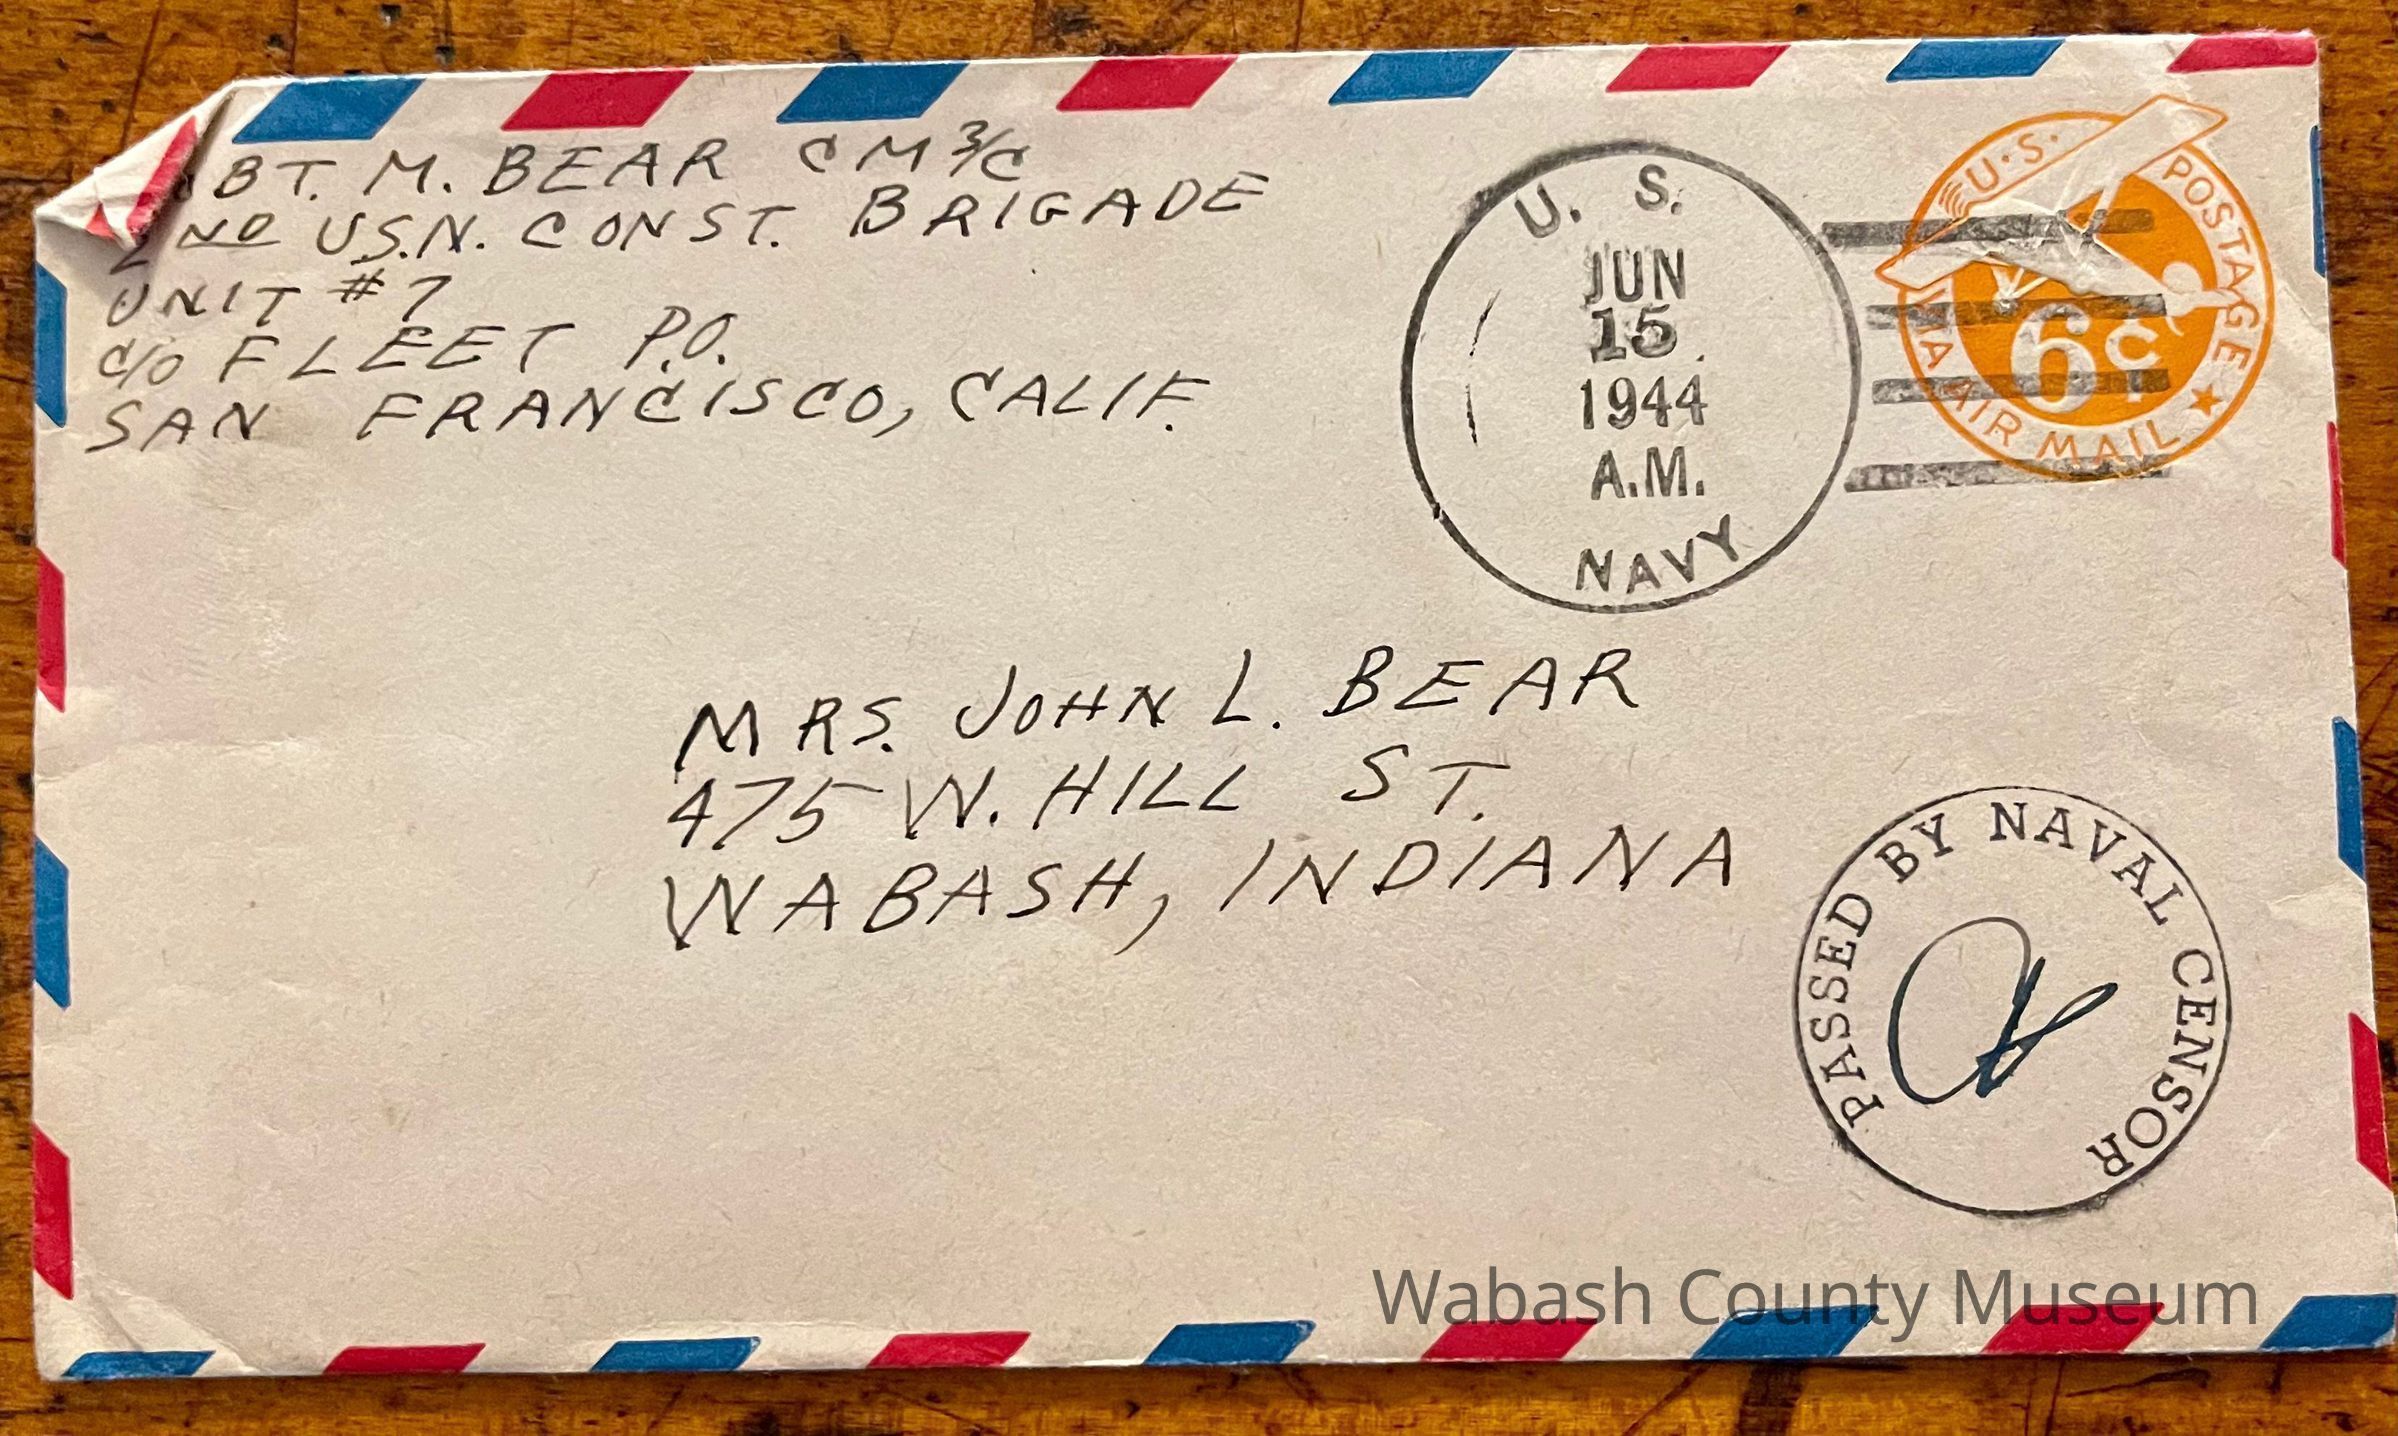 BT. M. BEAR CM 3/C
2ND U.S.N. CONST. BRIGADE
UNIT #7
C/O FLEET P.O.
SAN FRANCISCO, CALIF.
U. S.
JUN
15
1944
A.M.
NAVY
U.S. POSTAGE
6¢
VIA AIR MAIL
MRS. JOHN L. BEAR
475 W. HILL ST.
WABASH, INDIANA
PASSED BY NAVAL CENSOR
Wabash County Museum